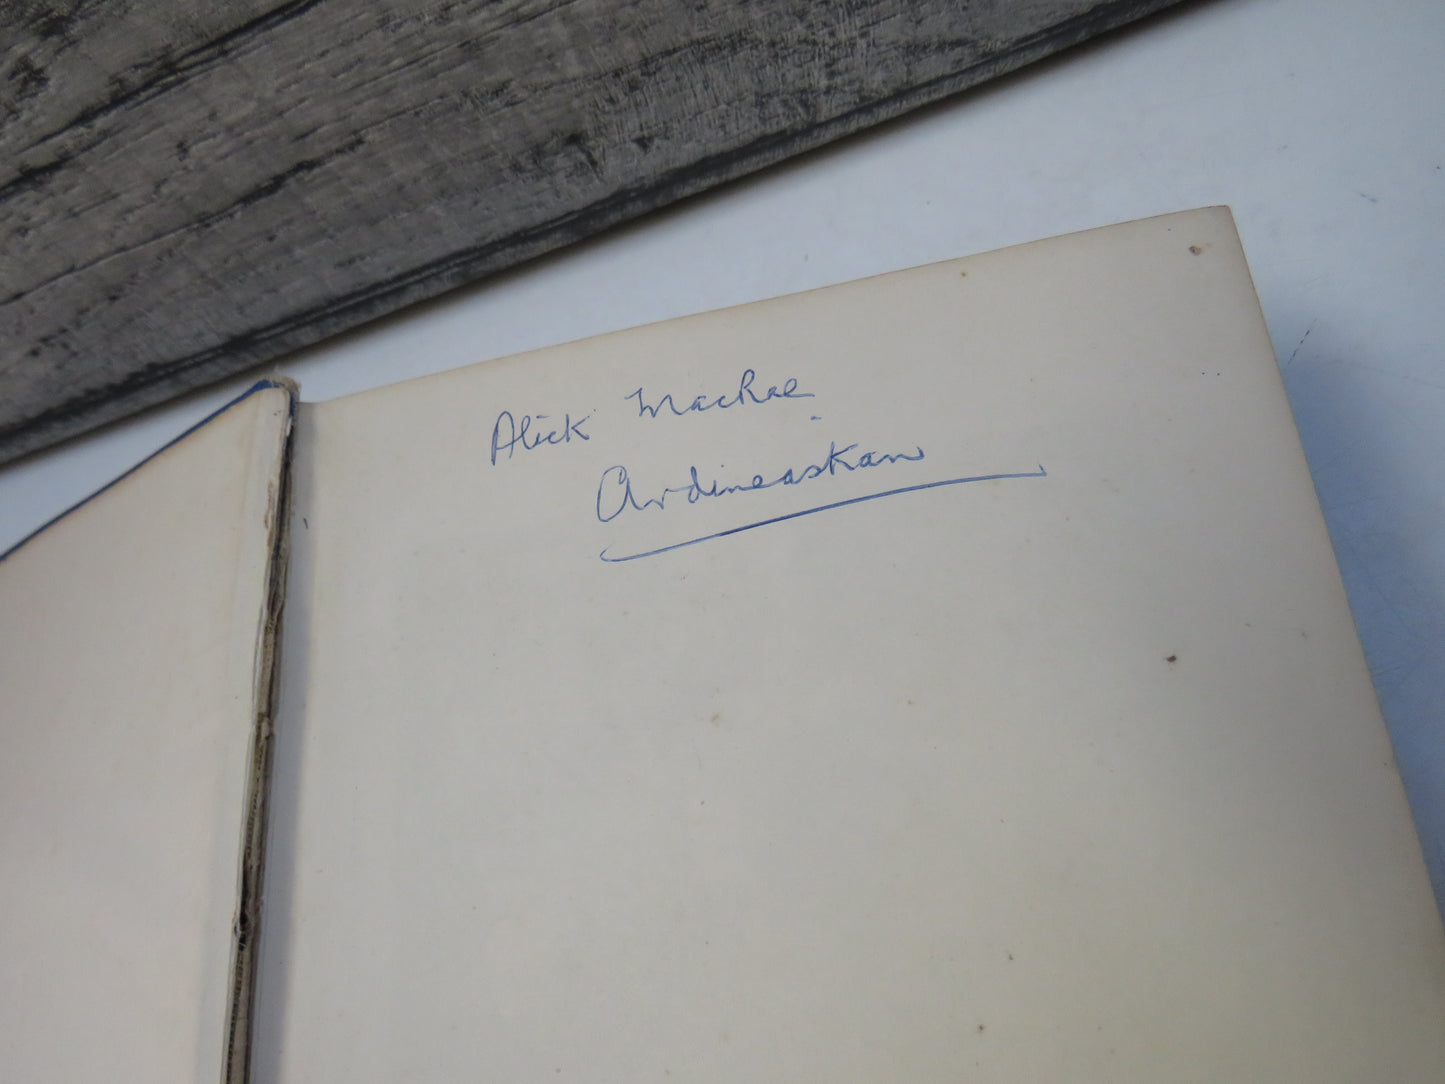 Alick MacRae
Ardineaskan